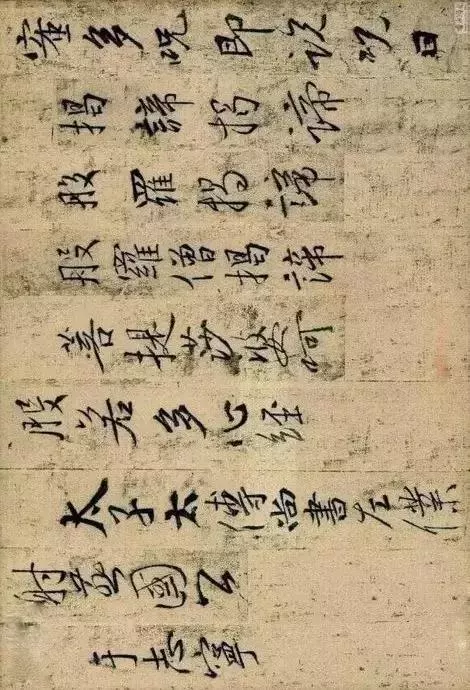 蜜多呪即说呪曰
揭諦揭諦
般羅揭諦
般羅僧揭諦
菩提莎婆呵
般若多心經
太子太傅尚書左僕
射燕國公
于志寧